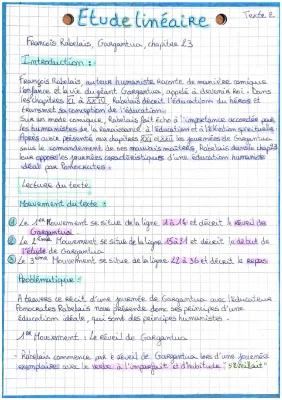 Etude linéaire
Texte 2
Francois Rabelais, Gargantua, chapitre 23
Introduction :
François Rabelais, auteur humaniste, raconte de manière comique
l'enfance et la vie du géant Gargantua, appelé à devenir Roi. Dans
les chapitres XI à XXIV, Rabelais décrit l'éducation du héros et
transmet sa conception de l'éducation.
Sur un mode comique, Rabelais fait écho à l'importance accordée par
les humanistes de la Renaissance à l'éducation et à l'élévation spirituelle.
Après avoir présenté aux chapitres XXI et XXII les journées de Gargantua
sous le commandement de ses mauvais maîtres, Rabelais dans le chap 23
leur oppose les journées caractéristiques d'une éducation humaniste
idéale par Ponocrates.
Lecture du texte
Mouvement du texte :
① Le 1er Mouvement se situe de la ligne 1 à 14 et décrit le réveil de
Gargantua
② Le 2ème Mouvement se situe de la ligne 15 à 21 et décrit le début de
l'étude de Gargantua
③ Le 3ème Mouvement se situe de la ligne 22 à 36 et décrit le repas
Problématique :
A travers ce récit d'une journée de Gargantua avec l'éducateur
Ponocrates Rabelais nous présente donc ses principes d'une
éducation idéale, qui sont des principes humanistes.
1er Mouvement : Le réveil de Gargantua
- Rabelais commence par le réveil de Gargantua lors d'une journée
exemplaire avec le verbe à l'imparfait et d'habitude : "s'éveillait"